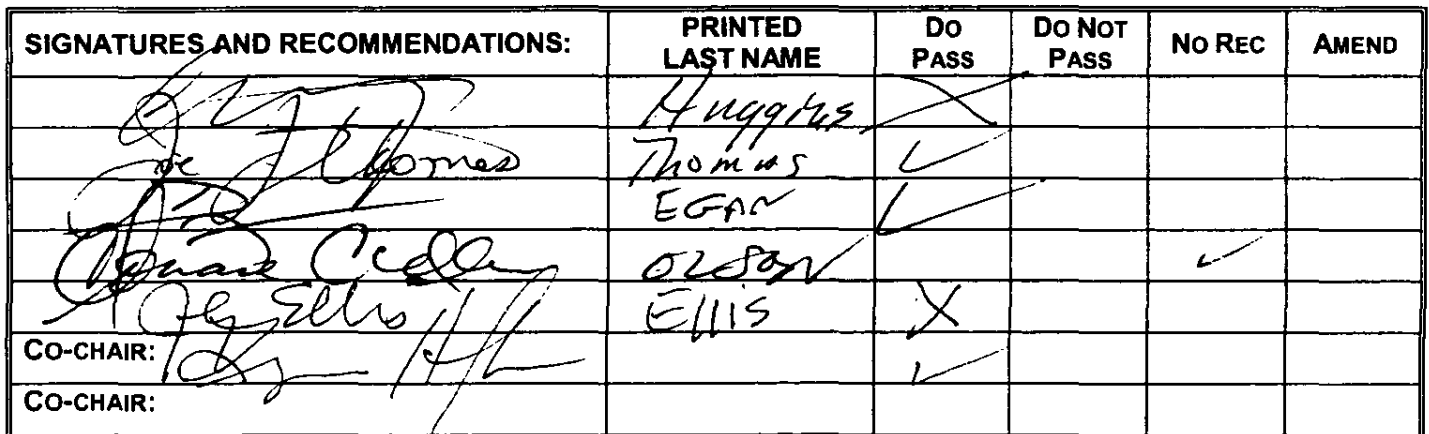 SIGNATURES AND RECOMMENDATIONS: PRINTED LAST NAME DO PASS DO NOT PASS NO REC AMEND
Huggins
Thomas Thomas
EGAN
OLSON
Ellis ELLIS
CO-CHAIR:
CO-CHAIR: